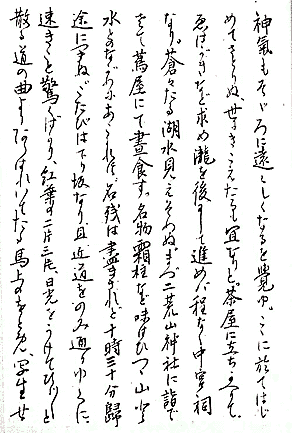 神氣もそゞろに遠くなるを覺ゆ。こゝに於てはじ
めてさとりぬ、世にきこえたるも宜なりと。茶屋に立ちよりて、
ゑはがきなど求め瀧を後にして進めば程なく中宮祠
なり。蒼々たる湖水見えそめぬ。まづ二荒山神社に詣で
さて蔦屋にて晝食す。名物霜柱など味はひつゝ山と
水とをながむ。あこがれの名殘は盡きざれど十時三十分歸
途に つく。こたびは下り坂なり、且近道をのみ通りゆくに
速きこと驚くばかり、紅葉の二片三片、日光をうけてひら〳〵と
散る道の曲よりあらはれいでたる馬上の 客